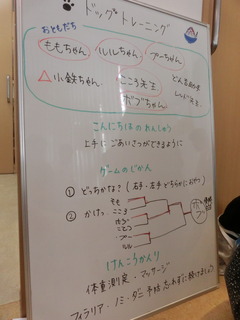 ドッグトレーニング
おともだち
ももちゃん ルルちゃん アーちゃん
△小鉄ちゃん こころ先生
ボブちゃん
こんにちはのれんしゅう
上手にごあいさつができるように
ゲームのじかん
① どっちかな？（右手・左手 どちらかにおやつ）
② かけっこ
もも
こころ
ボブ
こてつ
アー
ルル
けんこうかんり
体重測定・マッサージ
フィラリア・ノミ・ダニ 予防 忘れずに続けましょう